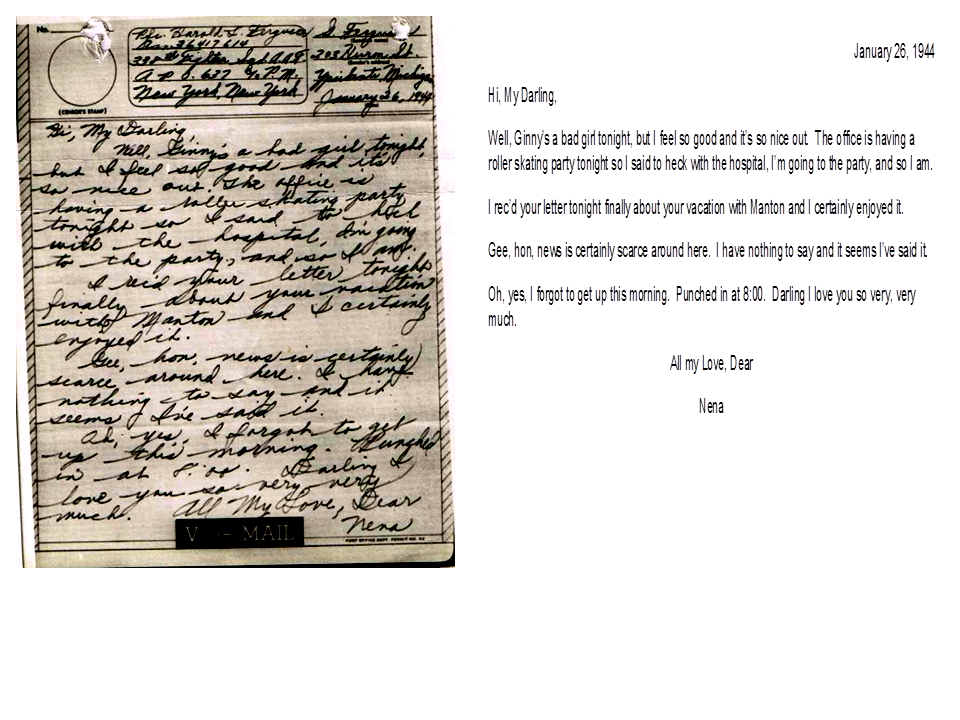 No.
(CENSOR'S STAMP)
Pfc. Harold L. Ferguson
Asn 36417614
398th Fighter Sqd. AAF
A P O. 637 % P.M.
New York, New York
(Sender's name)
(Sender's address)
Ypsilanti, Michigan
January 26, 1944
Hi, My Darling,
Well, Ginny's a bad girl tonight,
but I feel so good and it's
so nice out. The office is
having a roller skating party
tonight so I said to heck
with the hospital, I'm going
to the party, and so I am.
I rec'd your letter tonight
finally about your vacation
with Manton and I certainly
enjoyed it.
Gee, hon, news is certainly
scarce around here. I have
nothing to say and it
seems I've said it.
Oh, yes, I forgot to get
up this morning. Punched
in at 8:00. Darling I
love you so very, very
much. All My Love, Dear
Nena
V - MAIL
POST OFFICE DEPT. PERMIT NO.
January 26, 1944
Hi, My Darling,
Well, Ginny's a bad girl tonight, but I feel so good and it's so nice out. The office is having a
roller skating party tonight so I said to heck with the hospital, I'm going to the party, and so I am.
I rec'd your letter tonight finally about your vacation with Manton and I certainly enjoyed it.
Gee, hon, news is certainly scarce around here. I have nothing to say and it seems I've said it.
Oh, yes, I forgot to get up this morning. Punched in at 8:00. Darling I love you so very, very
much.
All my Love, Dear
Nena